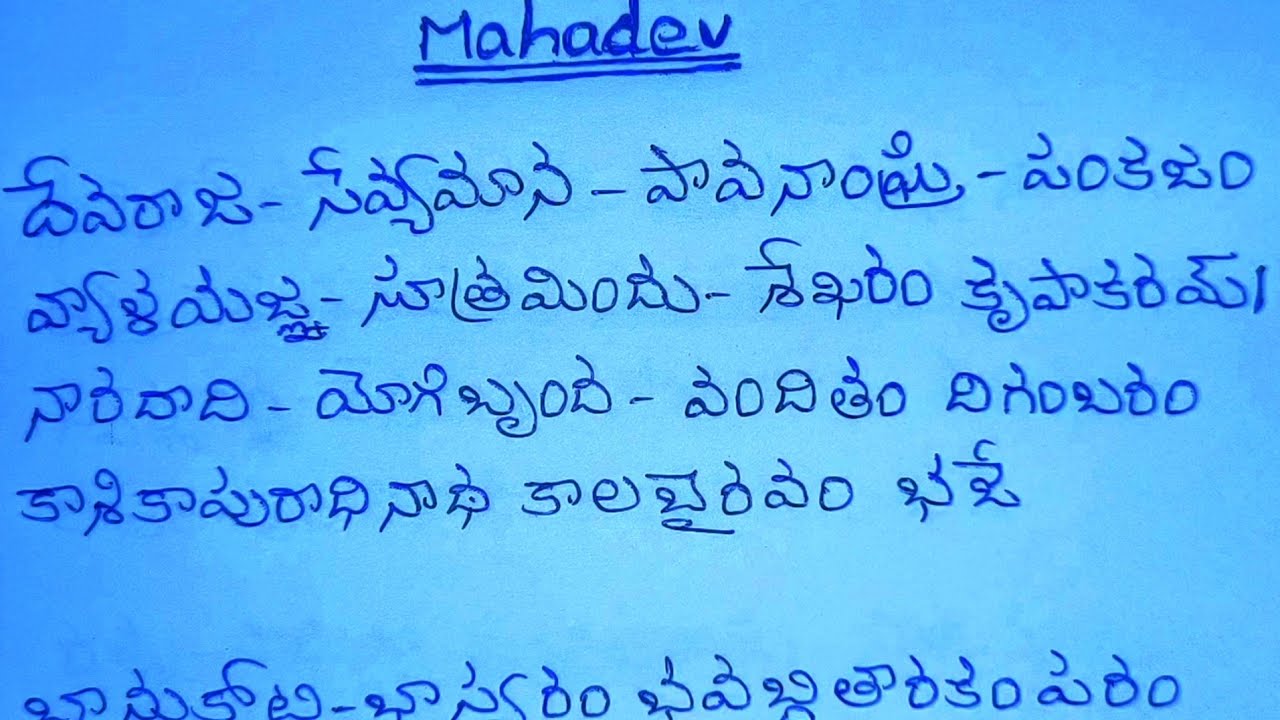 Mahadev
దేవరాజ - సేవ్యమాన - పావనాంఘ్రి - పంకజం
వ్యాళయజ్ఞ - సూత్రమిందు - శేఖరం కృపాకరమ్।
నారదాది - యోగిబృంద - వందితం దిగంబరం
కాశికాపురాధినాథ కాలభైరవం భజే
భానుకోటి - భాస్వరం భవబ్ధితారకం పరం